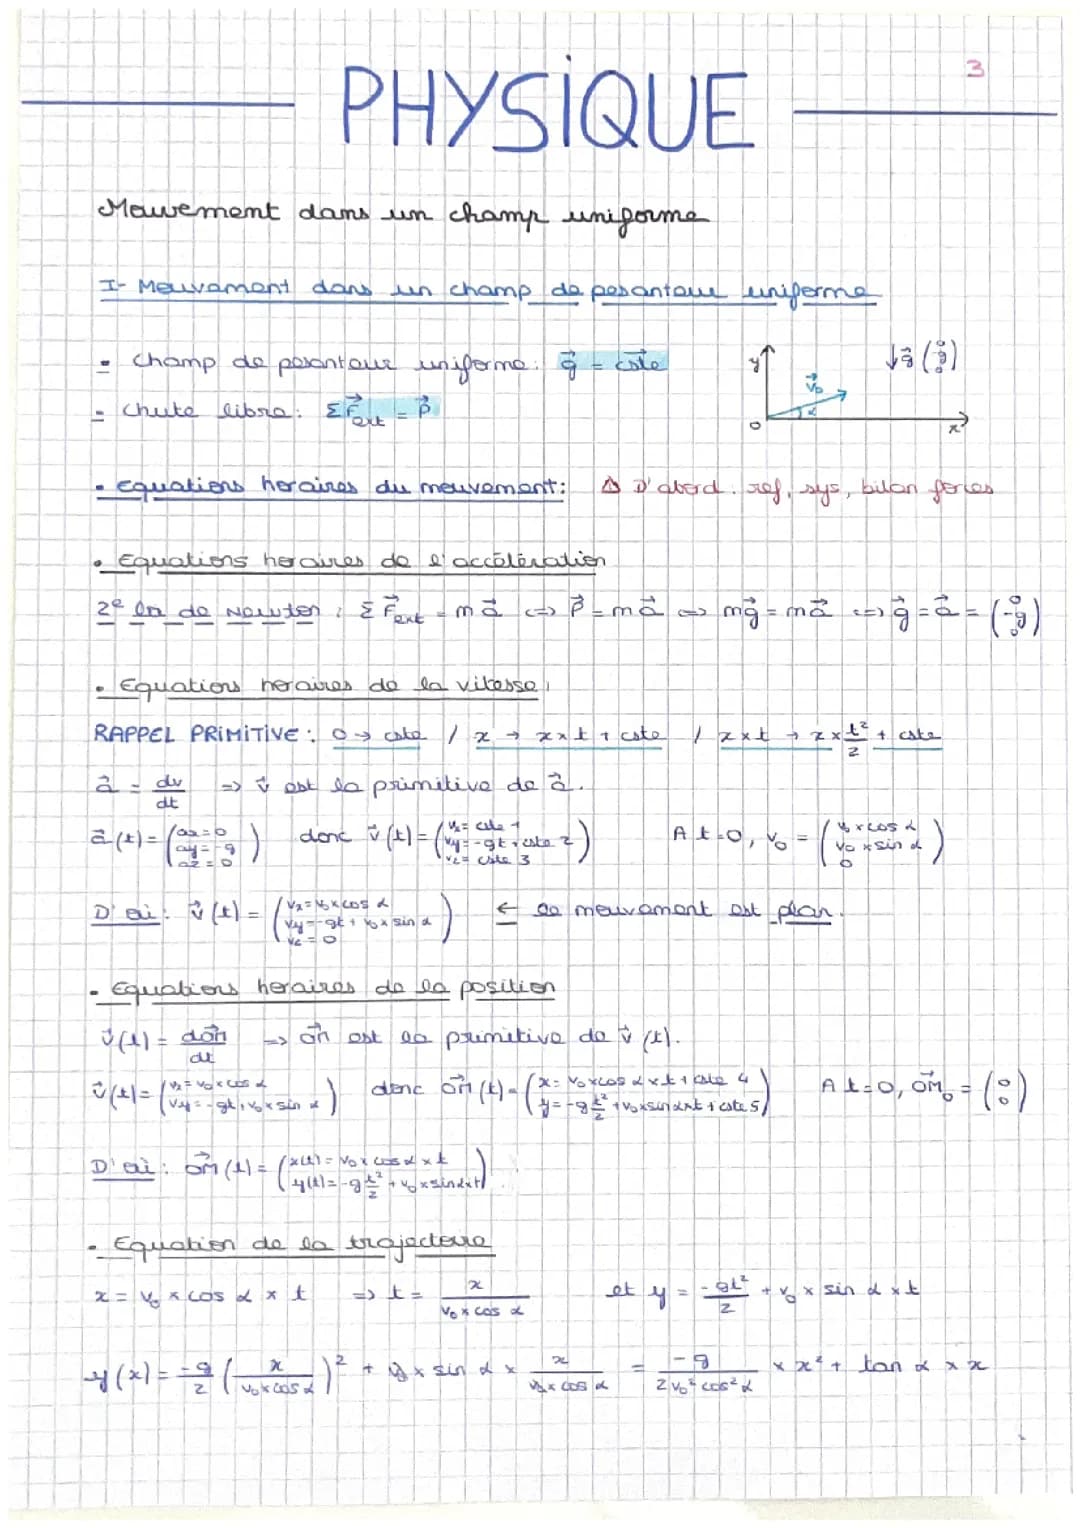 3
PHYSIQUE
Mouvement dans un champ uniforme
I- Mouvement dans un champ de pesanteur uniforme
- Champ de pesanteur uniforme : g⃗ = cste
- Chute libre : ΣF⃗ext = P⃗
y v⃗₀ α O x ↓g⃗ (0 -g 0)
- Equations horaires du mouvement : ⚠ D'abord : ref, sys, bilan forces
• Equations horaires de l'accélération
2e loi de Newton : ΣF⃗ext = ma⃗ <=> P⃗ = ma⃗ <=> mg⃗ = ma⃗ <=> g⃗ = a⃗ = (0 -g 0)
• Equations horaires de la vitesse :
RAPPEL PRIMITIVE : 0 → cste / x → x×t + cste / x×t → x×t²/2 + cste
a⃗ = dv/dt => v⃗ est la primitive de a⃗.
a⃗(t) = (ax = 0 ay = -g az = 0) donc v⃗(t) = (vx = cste 1 vy = -gt + cste 2 vz = cste 3) A t=0, v₀ = (v₀×cos α v₀×sin α 0)
D'où : v⃗(t) = (vx = v₀×cos α vy = -gt + v₀×sin α vz = 0) ← le mouvement est plan.
• Equations horaires de la position
v⃗(t) = dOM⃗/dt => OM⃗ est la primitive de v⃗(t).
v⃗(t) = (vx = v₀×cos α vy = -gt + v₀×sin α) donc OM⃗(t) = (x = v₀×cos α×t + cste 4 y = -g t²/2 + v₀×sin α×t + cste 5) A t=0, OM⃗₀ = (0 0)
D'où : OM⃗(t) = (x(t) = v₀×cos α×t y(t) = -g t²/2 + v₀×sin α×t)
• Equation de la trajectoire
x = v₀ × cos α × t => t = x/(v₀×cos α) et y = -gt²/2 + v₀ × sin α × t
y(x) = -g/2 (x/(v₀×cos α))² + v₀ × sin α × x/(v₀×cos α) = -g/(2v₀² cos² α) × x² + tan α × x